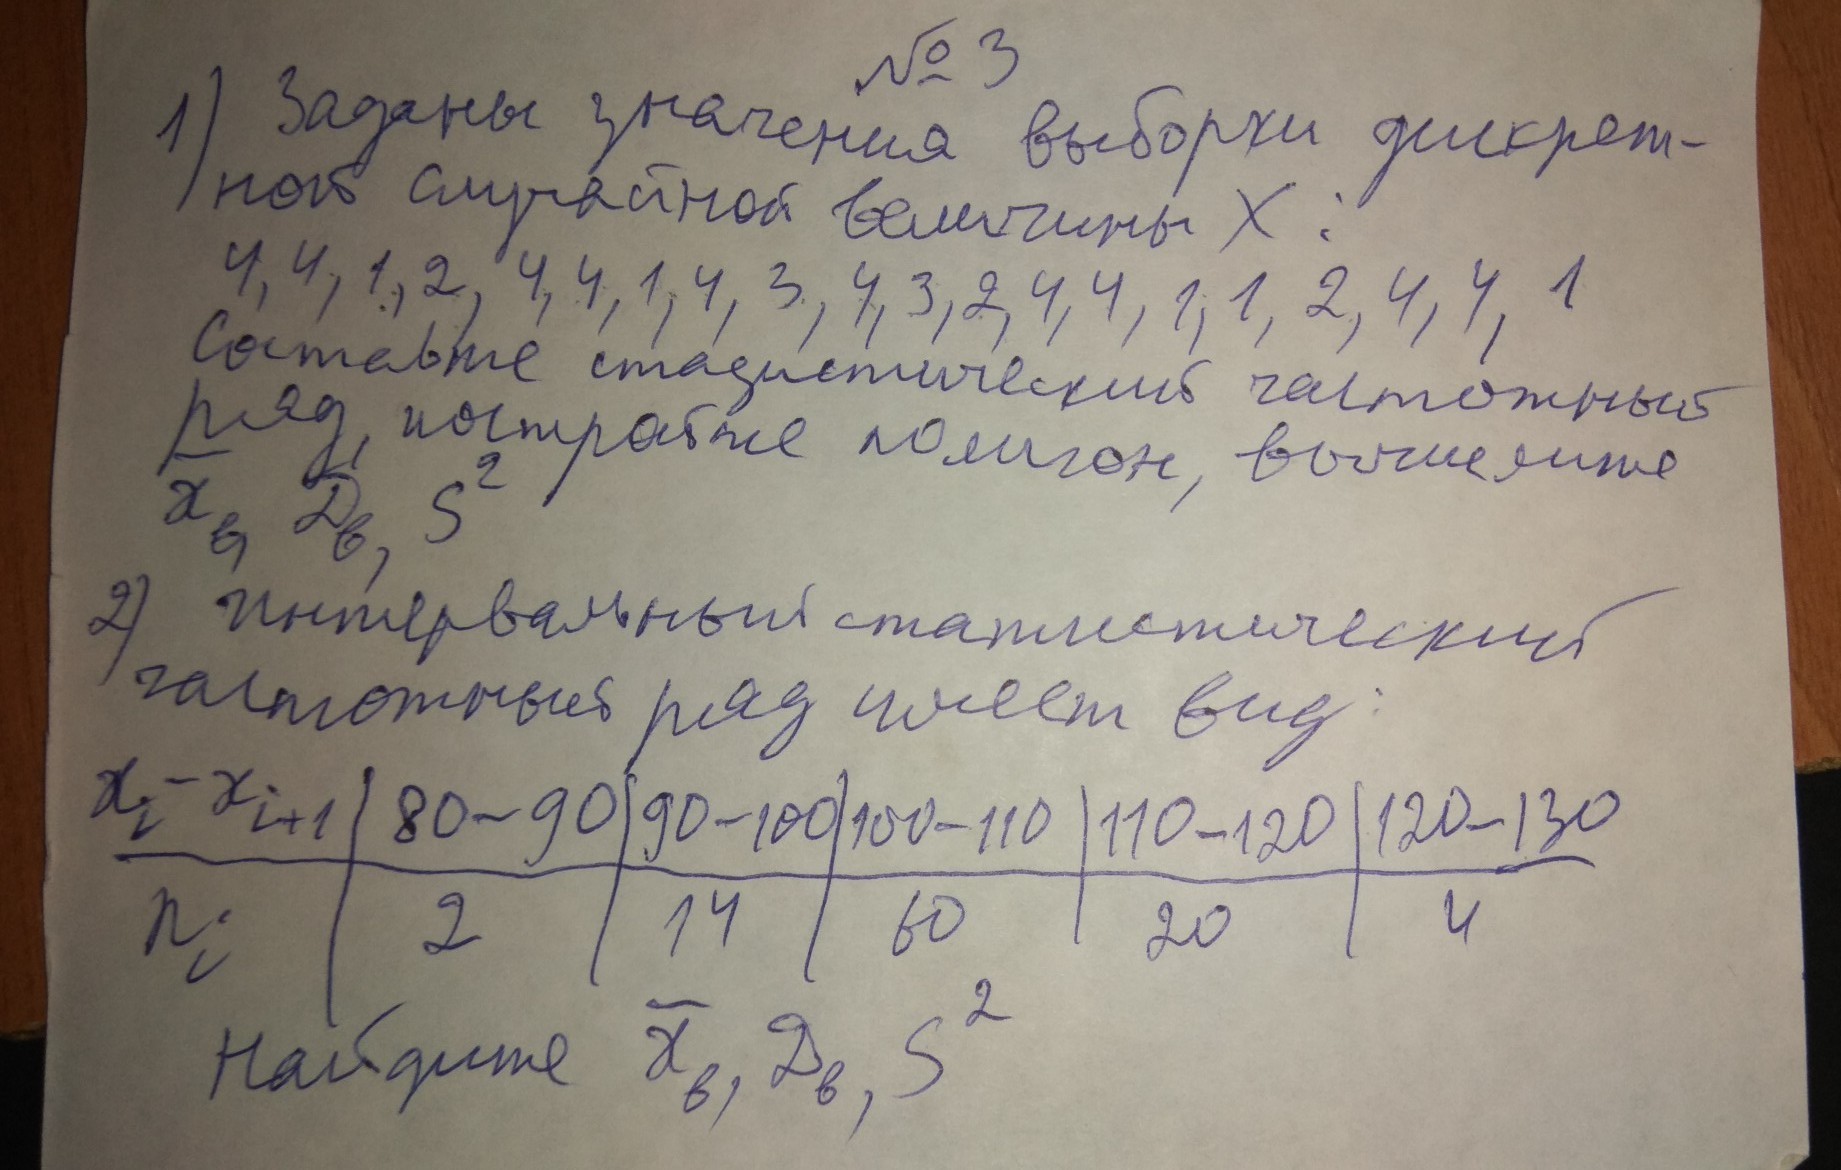 № 3
1) Заданы значения выборки дискрет-
ной случайной величины X:
4, 4, 1, 2, 4, 4, 1, 4, 3, 4, 3, 2, 4, 4, 1, 1, 2, 4, 4, 1
Составьте статистический частотный
ряд, постройте полигон, вычислите
x̄в, Дв, S²
2) Интервальный статистический
частотный ряд имеет вид:
xi - xi+1 | 80-90 | 90-100 | 100-110 | 110-120 | 120-130
ni | 2 | 14 | 60 | 20 | 4
Найдите x̄в, Дв, S²